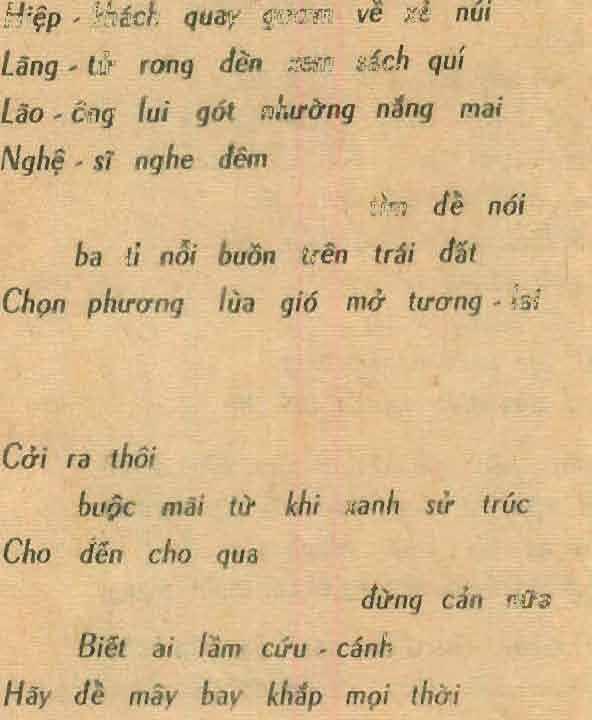 Hiệp - khách quay gươm về xẻ núi
Lãng - tử rong đèn xem sách quí
Lão - ông lui gót nhường nắng mai
Nghệ - sĩ nghe đêm
tìm để nói
ba tỉ nỗi buồn trên trái đất
Chọn phương lùa gió mở tương - lai
Cởi ra thôi
buộc mãi từ khi xanh sử trúc
Cho đến cho qua
đừng cản nữa
Biết ai lầm cứu - cánh
Hãy để mây bay khắp mọi thời